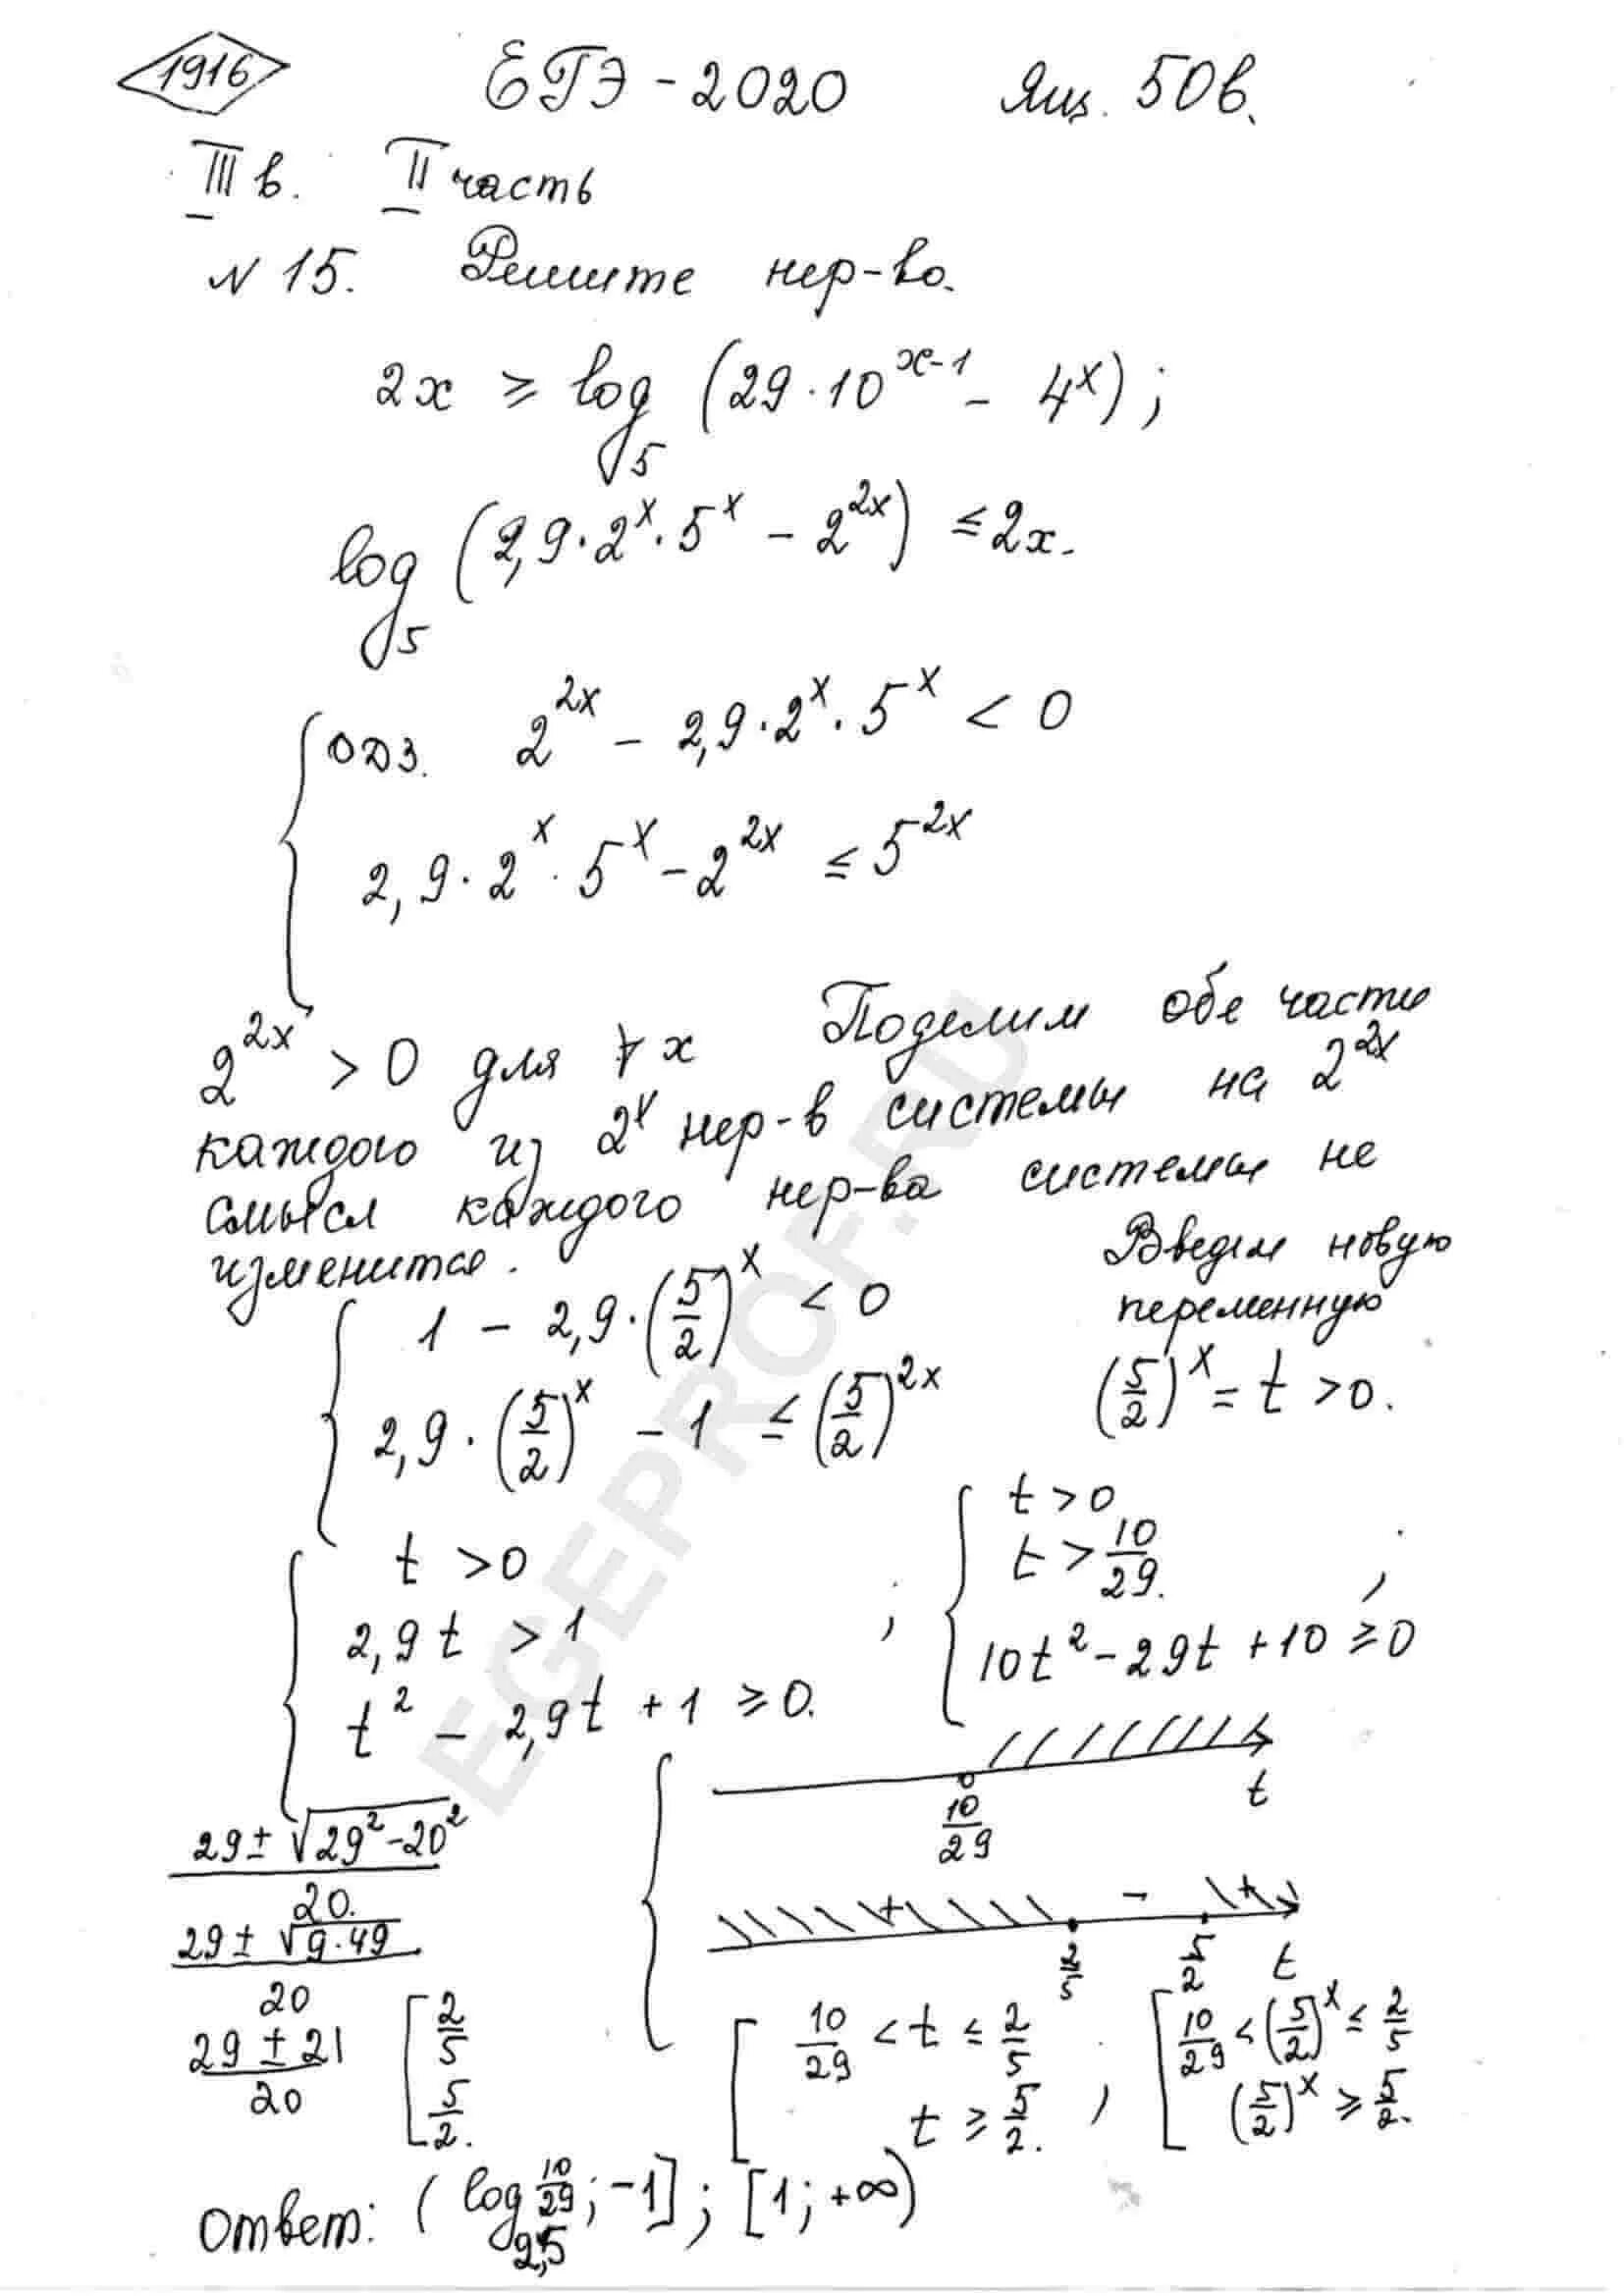 1916 ЕГЭ - 2020 Ящ. 50в.
III в. II часть
N 15. Решите нер-во.
2x ≥ log₅ (29·10^(x-1) - 4^x) ;
log₅ (2,9·2^x·5^x - 2^(2x)) ≤ 2x.
{ ОДЗ. 2^(2x) - 2,9·2^x·5^x < 0
2,9·2^x·5^x - 2^(2x) ≤ 5^(2x)
2^(2x) > 0 для ∀ x Поделим обе части
каждого из 2^x нер-в системы на 2^(2x)
смысл каждого нер-ва системы не
изменится. Введем новую
переменную
{ 1 - 2,9·(5/2)^x < 0
2,9·(5/2)^x - 1 ≤ (5/2)^(2x) (5/2)^x = t > 0.
{ t > 0
2,9t > 1
t² - 2,9t + 1 ≥ 0. ;
{ t > 0
t > 10/29.
10t² - 29t + 10 ≥ 0 ;
(29 ± √(29² - 20²))/20.
(29 ± √(9·49))/20
(29 ± 21)/20 [ 2/5
5/2.
{ 10/29 t
+ - +
2/5 5/2 t
[ 10/29 < t ≤ 2/5
t ≥ 5/2. ;
[ 10/29 < (5/2)^x ≤ 2/5
(5/2)^x ≥ 5/2.
Ответ: (log_2,5 10/29; -1]; [1; +∞)
EGEPROF.RU